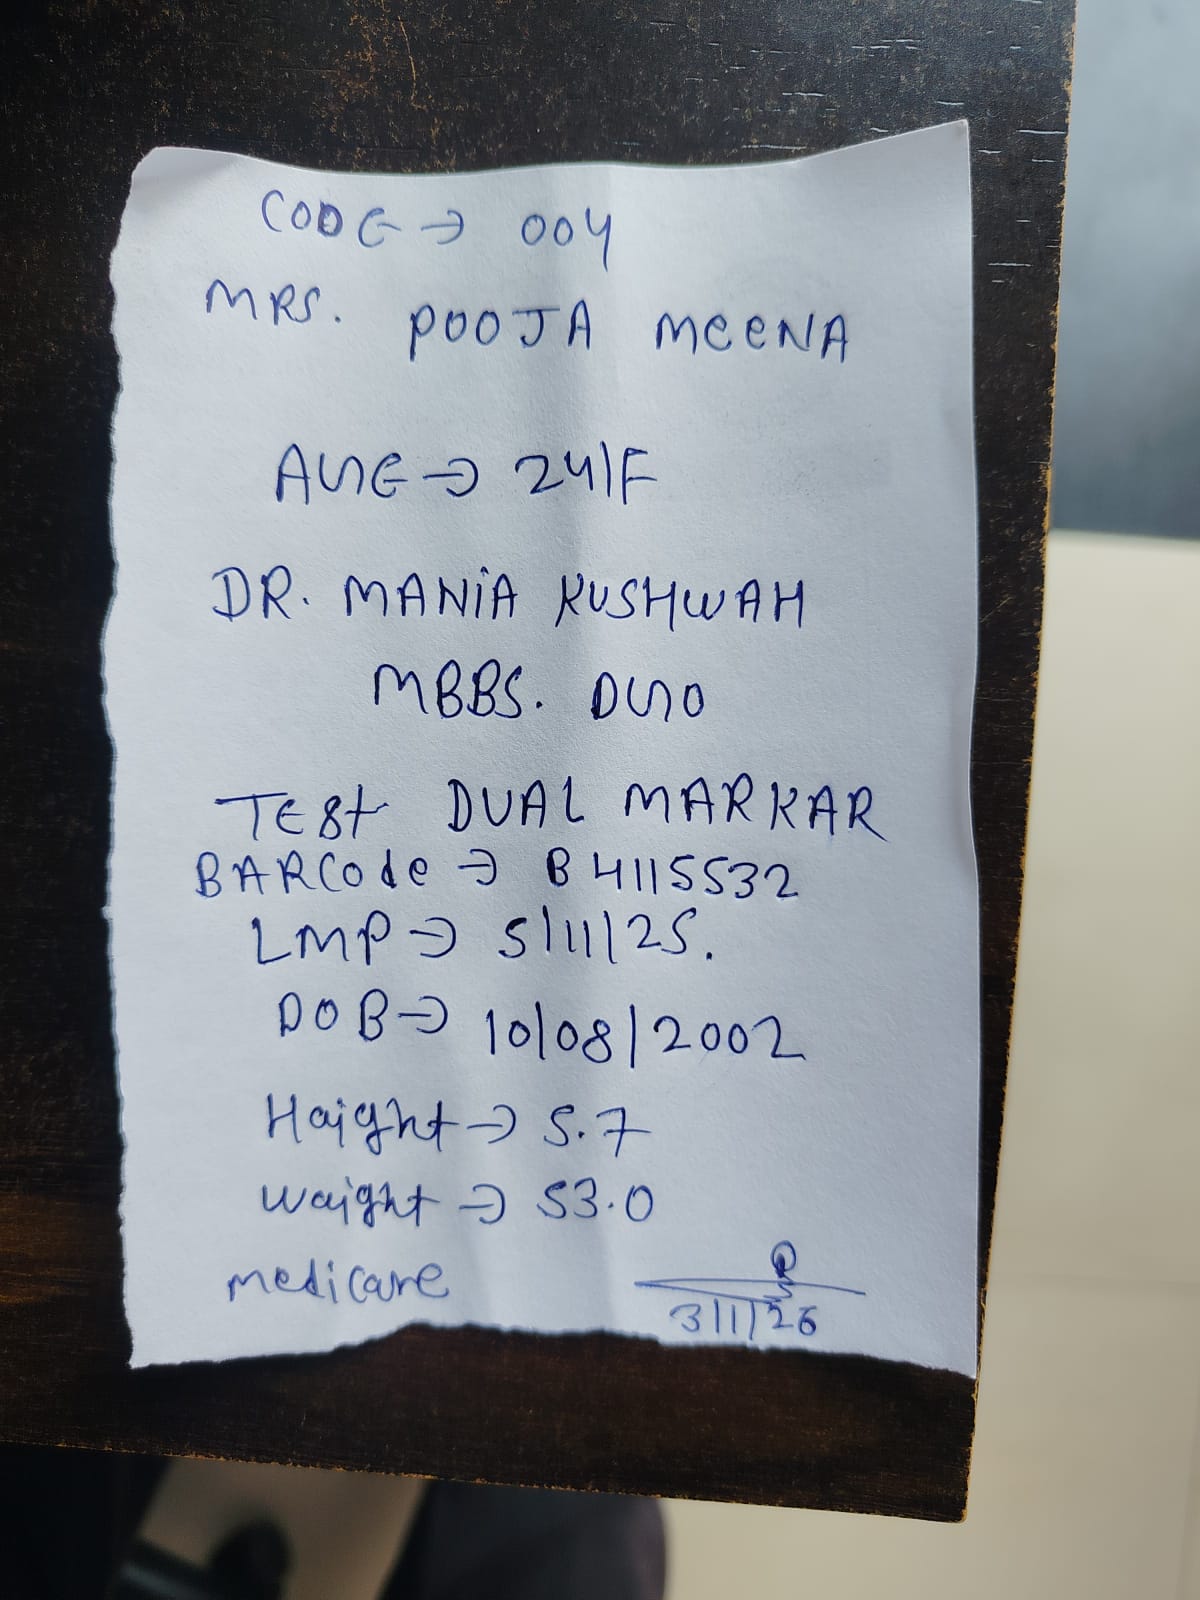 CODE → 004
MRS. POOJA MEENA
AGE → 24/F
DR. MANIA KUSHWAH
MBBS. DGO
TEST DUAL MARKAR
BARCode → B4115532
LMP → 5/11/25.
DOB → 10/08/2002
Haight → 5.7
Waight → 53.0
medicare
3/1/26